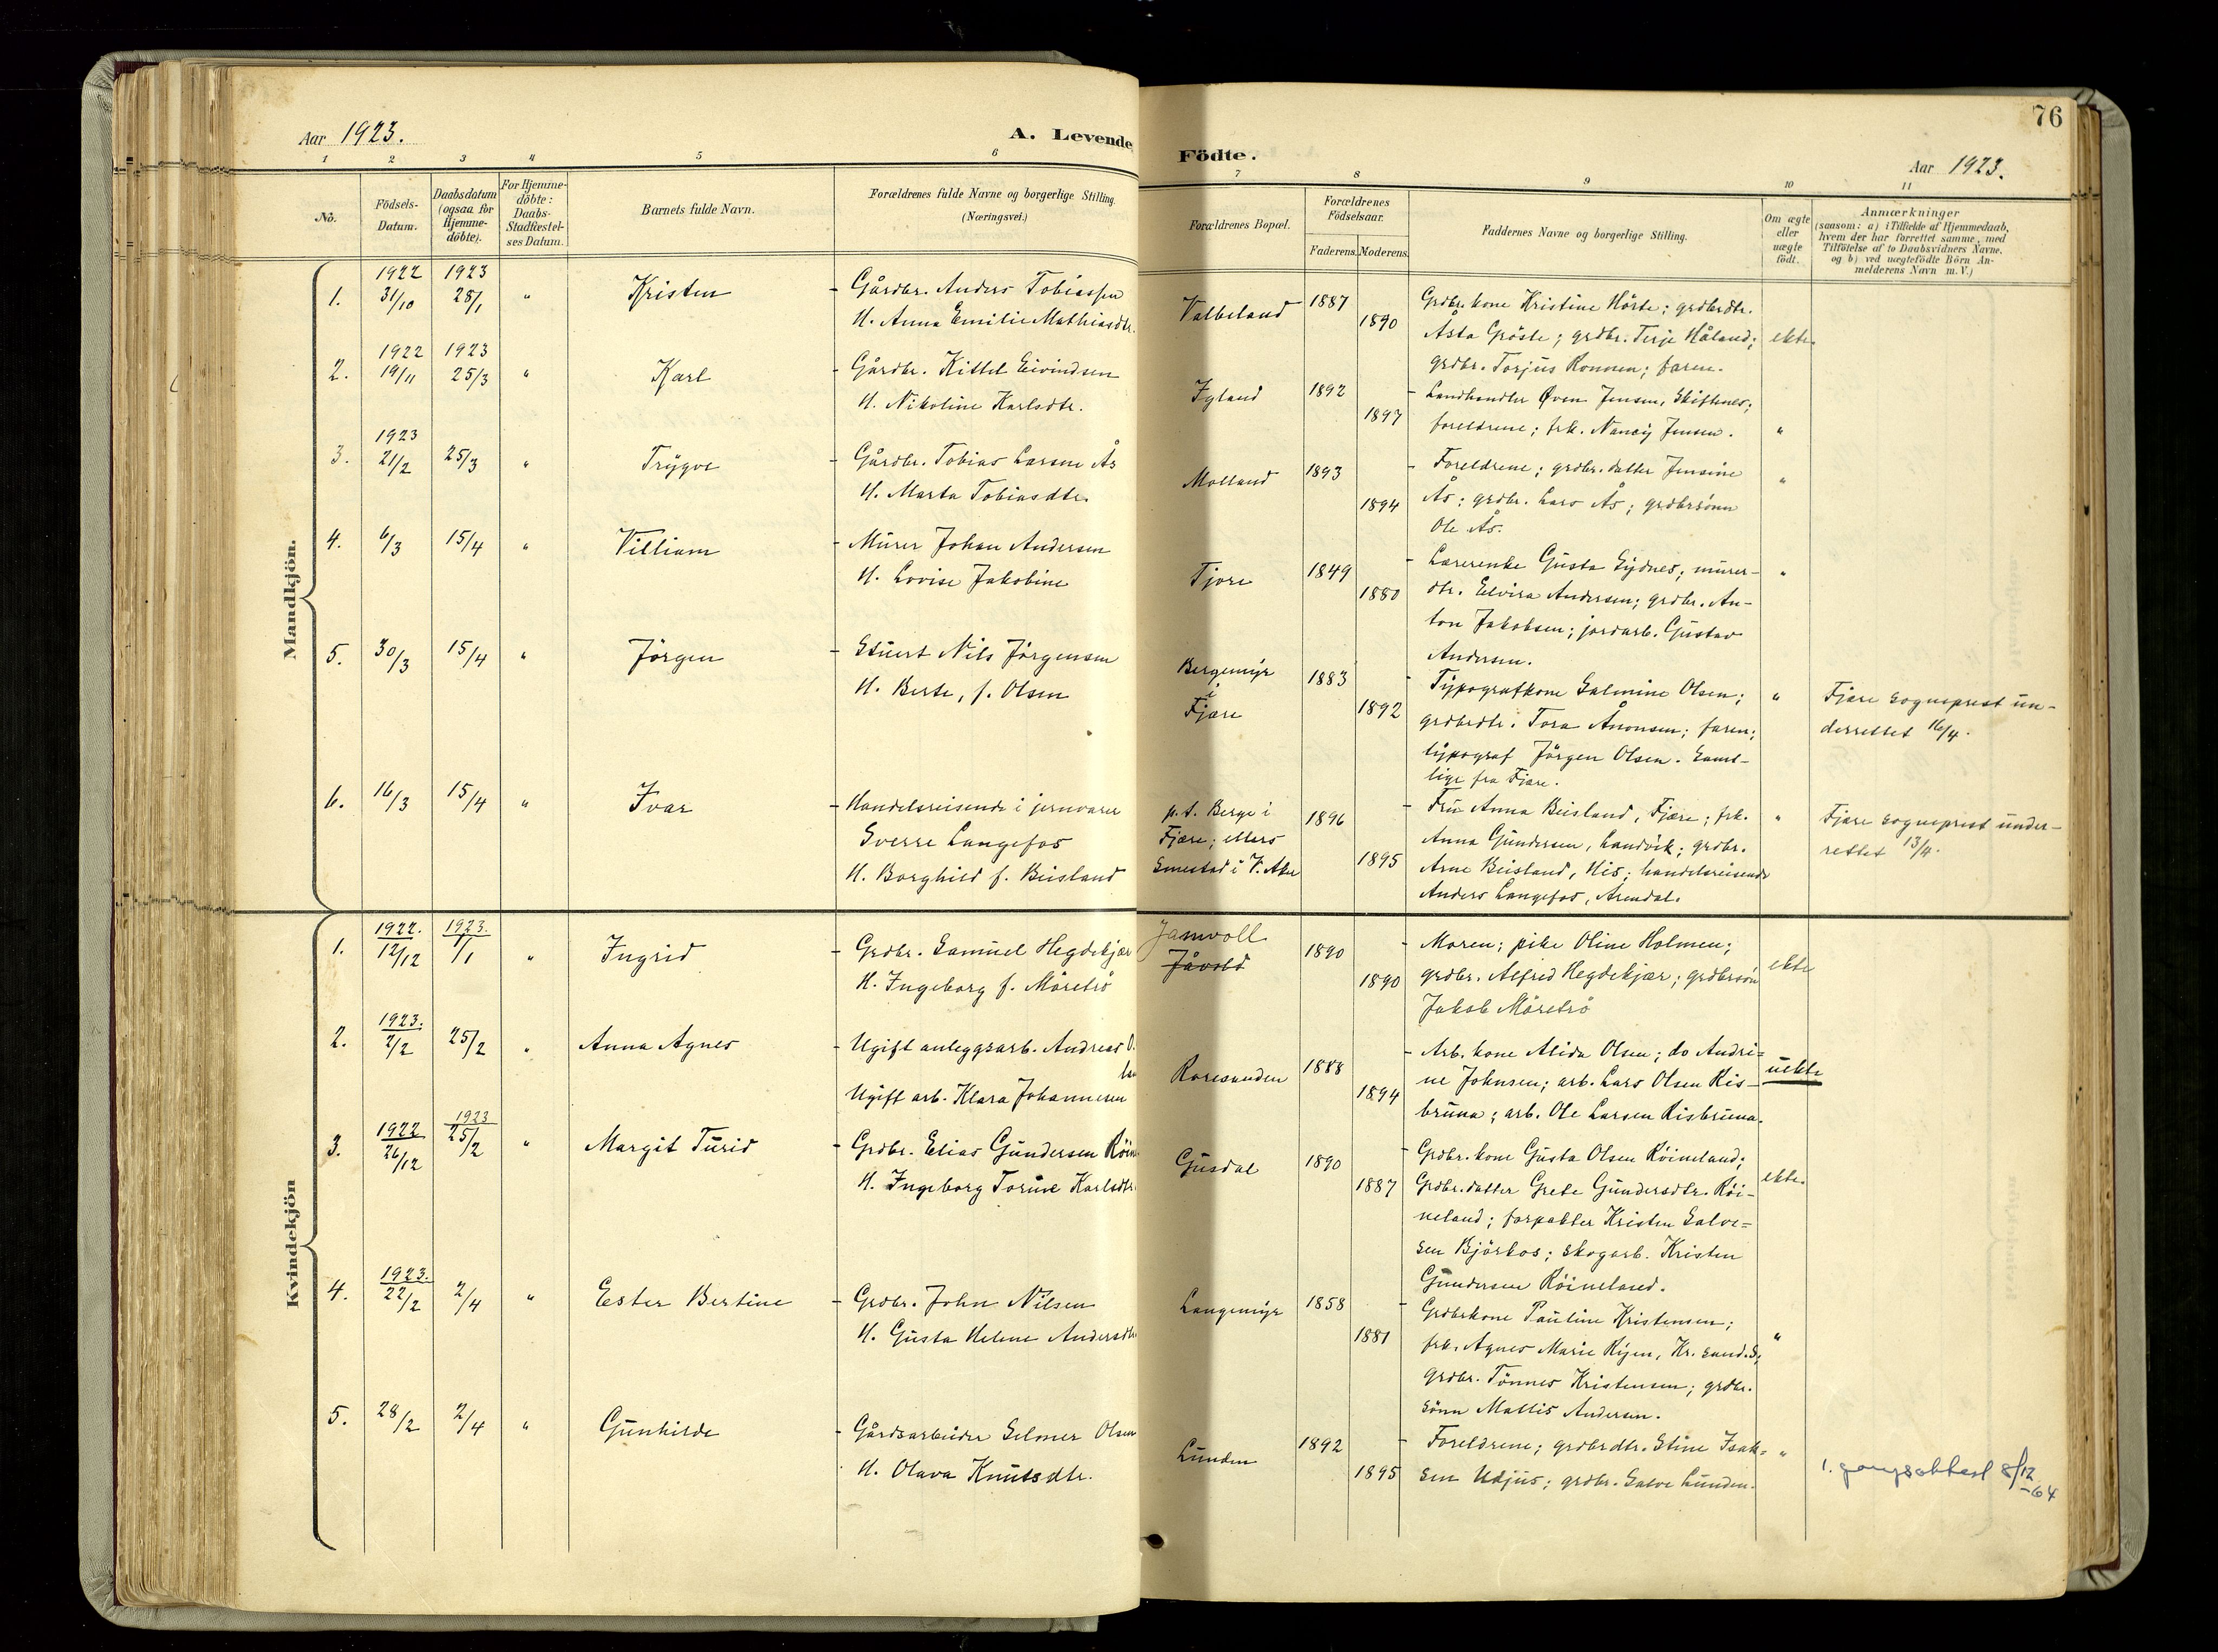 76
Aar 1923.
A. Levende
Födte.
Aar 1923.
1 2 3 4 5 6
7 8 9 10 11
No.
Födsels-
Datum.
Daabsdatum
(ogsaa for
Hjemme-
döbte).
For Hjemme-
döbte:
Daabs-
Stadfæstel-
ses Datum.
Barnets fulde Navn.
Forældrenes fulde Navne og borgerlige Stilling.
(Næringsvei.)
Forældrenes Bopæl.
Forældrenes
Födselsaar.
Faderens.
Moderens.
Faddernes Navne og borgerlige Stilling.
Om ægte
eller
uægte
födt.
Anmærkninger
(saasom: a) i Tilfælde af Hjemmedaab,
hvem der har forrettet samme, med
Tilföielse af to Daabsvidners Navne.
og b) ved uægtefödte Börn An-
melderens Navn m. V.)
Mandkjön.
1.
1922
31/10
1923
28/1
"
Kristen
- Gårdbr. Anders Tobiassen
H. Anna Emilie Mathiasdtr.
Valbeland
1887
1890
Grdbr.kone Kristine Hörte; grdbrdtr.
Åsta Gröste; grdbr. Terje Håland;
grdbr. Torjus Ronnen; faren.
ekte.
2.
1922
19/11
1923
25/3
"
Karl
- Gårdbr. Kittel Eivindsen
H. Nikoline Karlsdtr.
Igland
1892
1897
- Landhandler Øven Jensen, Skiftenes;
foreldrene; frk. Nancy Jensen.
"
3.
1923
21/2
25/3
"
Trygve
- Gårdbr. Tobias Larsen Ås
H. Marta Tobiasdtr.
Molland
1893
1894
- Foreldrene; grdbr.datter Jensine
Ås; grdbr. Lars Ås; grdbrsönn
Ole Ås.
"
4.
6/3
15/4
"
Villiam
- Murer Johan Andersen
H. Lovise Jakobine
Tjore
1849
1880
- Lærerenke Gusta Eydnes; murer-
dtr. Elvira Andersen; grdbr. An-
ton Jakobsen; jordarb. Gustav
Andersen.
"
5.
30/3
15/4
"
Jörgen
- Stuert Nils Jörgensen
H. Berte, f. Olsen
Bergemyr
i
Fjære
1883
1892
- Typografkone Salmine Olsen;
grdbrdtr. Tora Ånonsen; faren;
typograf Jörgen Olsen. Samt-
lige fra Fjære.
"
Fjære sogneprest un-
derrettet 16/4.
6.
16/3
15/4
"
Ivar
- Handelsreisende i jernvarer
Sverre Langefos
H. Borghild f. Beisland
p.t. Berge i
Fjære; ellers
Smestad i V. Aker
1896
1895
- Fru Anna Beisland, Fjære; frk.
Anna Gundersen, Landvik; grdbr.
Arne Beisland, His; handelsreisende
Anders Langefos, Arendal.
"
Fjære sogneprest under-
rettet 13/4.
Kvindekjön
1.
1922.
12/12
1923.
1/1
"
Ingrid
- Grdbr. Samuel Hegdekjær
H. Ingeborg f. Möretrö
Jamvoll
Jåvold
1890
1890
- Moren; pike Oline Holmen;
grdbr. Alfred Hegdekjær; grdbrsön
Jakob Möretrö
ekte
2.
1923.
2/2
25/2
"
Anna Agnes
- Ugift anleggsarb. Andreas O.
Ugift arb. Klara Johannesen
Roresanden
1888
1894
- Arb. kone Alida Olsen; do Andri-
ne Johnsen; arb. Lars Olsen Ris-
bruna; arb. Ole Larsen Risbruna.
uekte
3.
1922
26/12
1923
25/2
"
Margit Turid
- Grdbr. Elias Gundersen Röin
H. Ingeborg Torine Karlsdtr.
Gusdal
1890
1887
- Grdbr.kone Gusta Olsen Röineland;
Grdbr.datter Grete Gundersdtr. Röi-
neland; forpakter Kristen Salve-
sen Björkos; skogarb. Kristen
Gundersen Röineland.
ekte.
4.
1923.
22/2
2/4
"
Ester Bertine
- Grdbr. John Nilsen
H. Gusta Helene Andersdtr
Langemyr
1858
1881
- Grdbrkone Pauline Kristensen;
frk. Agnes Marie Ryen, Kr.sand.S;
grdbr. Tönnes Kristensen; grdbr.
sönn Mattis Andersen.
"
5.
28/2
2/4
"
Gunhilde
- Gårdsarbeider Selmer Olsen
H. Olava Knutsdtr.
Lunden
1892
1895
- Foreldrene; grdbrdtr. Stine Isak-
sen Udjus; grdbr. Salve Lunden.
"
1. gangsattest 8/12
-64